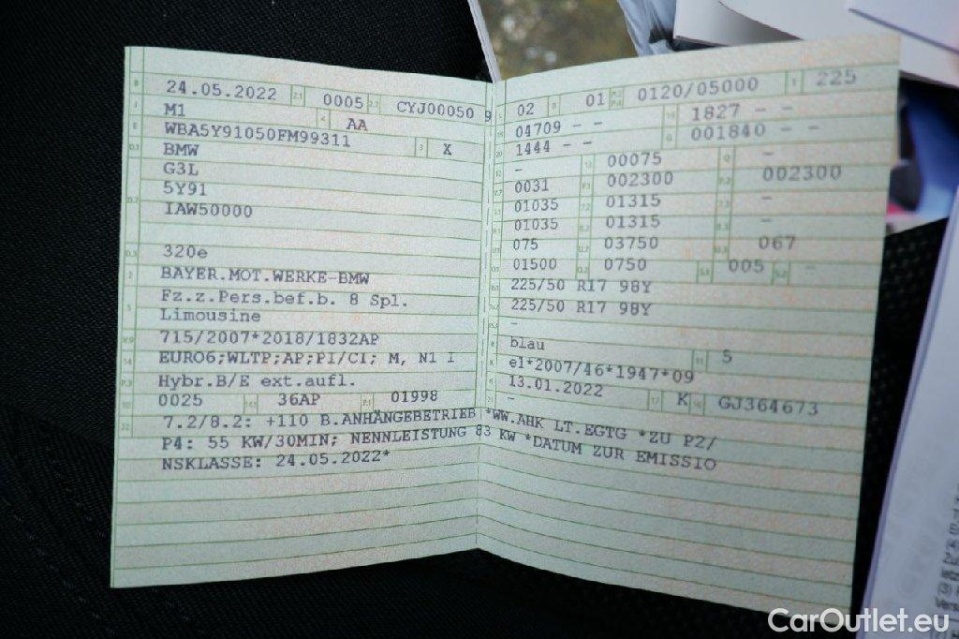 24.05.2022 2.1 0005 2.2 CYJ00050 9
M1 AA
WBA5Y91050FM99311 3 X
BMW
G3L
5Y91
IAW50000
320e
BAYER.MOT.WERKE-BMW
Fz.z.Pers.bef.b. 8 Spl.
Limousine
715/2007*2018/1832AP
EURO6;WLTP;AP;PI/CI; M, N1 I
Hybr.B/E ext.aufl.
0025 36AP 01998
02 01 0120/05000 225
04709 - - 1827 - -
1444 - - 001840 - -
- 00075 -
0031 002300 002300
01035 01315 -
01035 01315 -
075 03750 067
01500 0750 005
225/50 R17 98Y
225/50 R17 98Y
-
blau 5
e1*2007/46*1947*09
13.01.2022 K GJ364673
-
7.2/8.2: +110 B.ANHÄNGEBETRIEB *WW.AHK LT.EGTG *ZU P2/
P4: 55 KW/30MIN; NENNLEISTUNG 83 KW *DATUM ZUR EMISSIO
NSKLASSE: 24.05.2022*
CarOutlet.eu